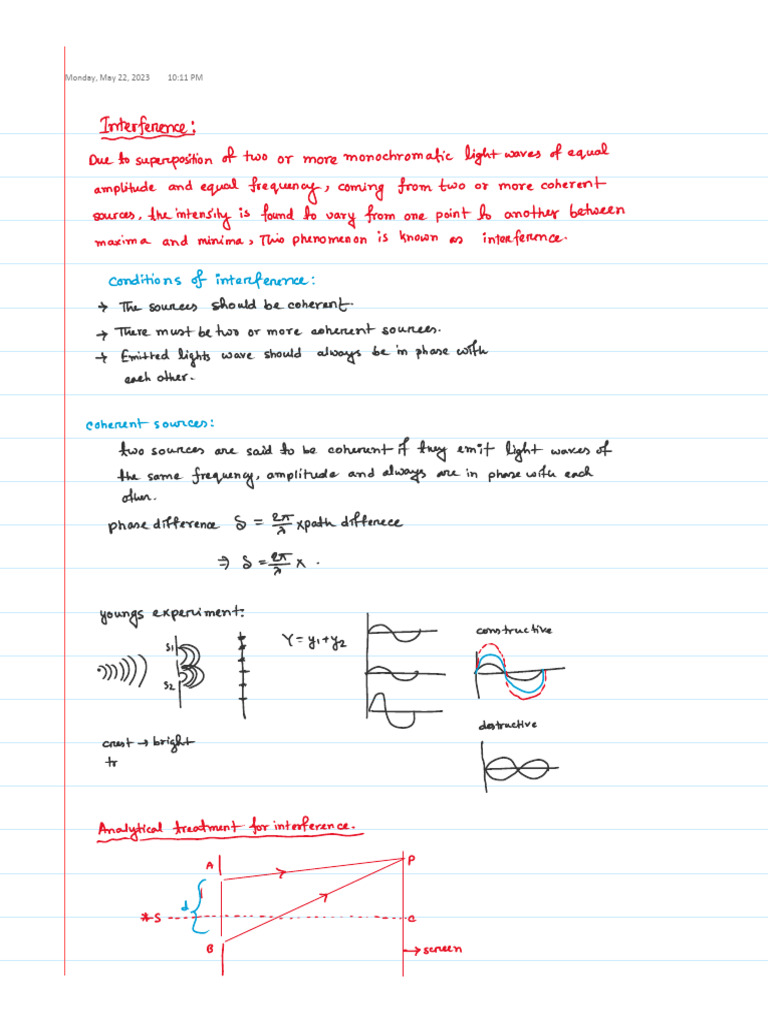 Monday, May 22, 2023 10:11 PM
Interference:
Due to superposition of two or more monochromatic light waves of equal
amplitude and equal frequency, coming from two or more coherent
sources, the intensity is found to vary from one point to another between
maxima and minima, This phenomenon is known as interference.
Conditions of interference:
→ The sources should be coherent.
→ There must be two or more coherent sources.
→ Emitted lights wave should always be in phase with
each other.
coherent sources:
two sources are said to be coherent if they emit light waves of
the same frequency, amplitude and always are in phase with each
other.
phase difference δ = 2π/λ x path differece
⇒ δ = 2π/λ x .
youngs experiment:
Y = y1 + y2
constructive
S1
S2
destructive
crest → bright
tr
Analytical treatment for interference.
A
P
d
*S
C
B
→ screen